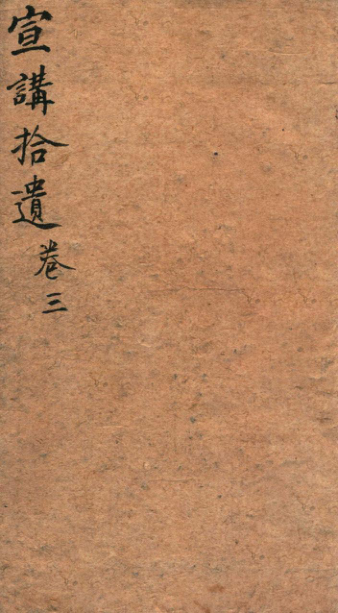 宣講拾遺卷三